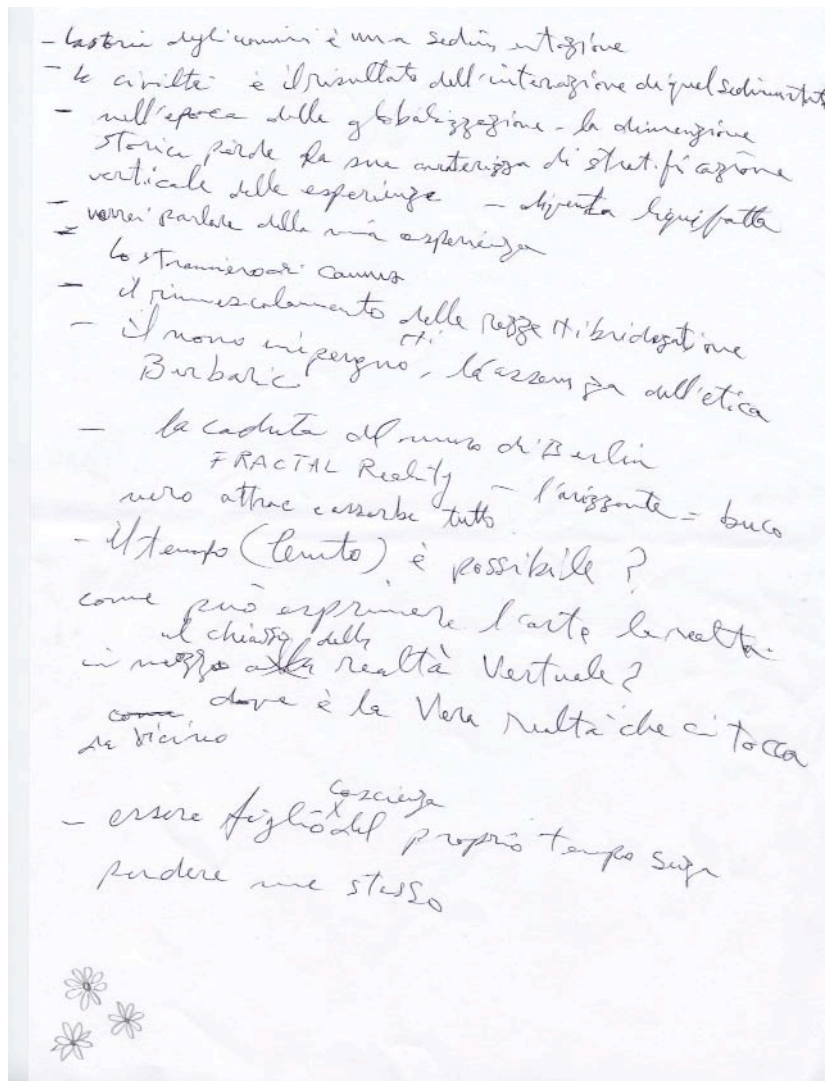 - la storia degli uomini è una sedimentazione
- la civiltà è il risultato dell'interazione di quel
- nell'epoca della globalizzazione - la dimenzione
storica perde la sua di stratificazione
verticale delle esperienze - diventa liquifatta
- vorrei parlare della mia esperienza
lo straniero di Camus
- il rimescolamento delle razze
- il nono, l'assenza dell'etica
- la caduta del muro di Berlin
FRACTAL Reality - l'orizzonte = buco
nero attrae e assorbe tutto
- il tempo (lento) è possibile?
come può esprimere l'arte la realtà
il chiasso della
in mezzo realtà Vertuale?
dove è la Vera realtà che ci tocca
da vicino
coscienza
- essere figlio del proprio tempo
perdere me stesso